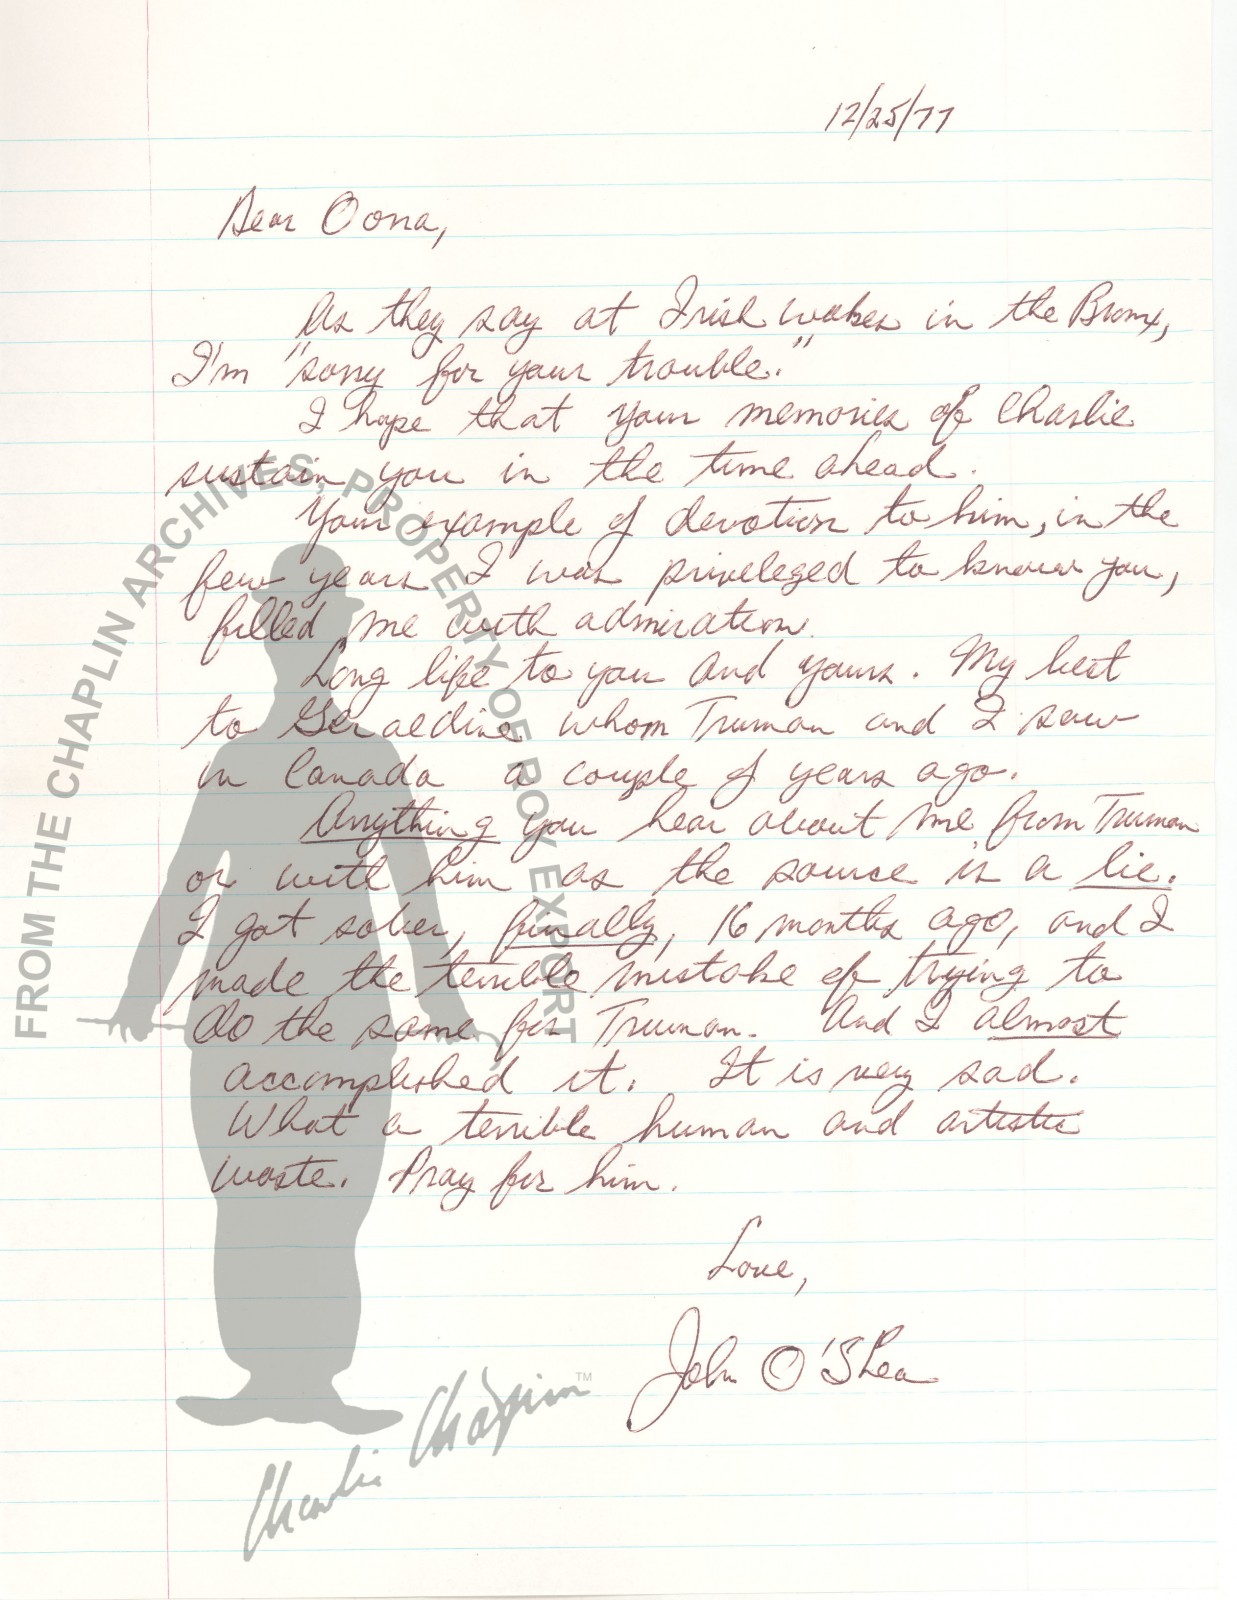 12/25/77
Dear Oona,
As they say at Irish wakes in the Bronx,
I'm "sorry for your trouble."
I hope that your memories of Charlie
sustain you in the time ahead.
Your example of devotion to him, in the
few years I was privileged to know you,
filled me with admiration.
Long life to you and yours. My best
to Geraldine whom Truman and I saw
in Canada a couple of years ago.
Anything you hear about me from Truman
or with him as the source is a lie.
I got sober, finally, 16 months ago, and I
made the terrible mistake of trying to
do the same for Truman. And I almost
accomplished it. It is very sad.
What a terrible human and artistic
waste. Pray for him.
Love,
John O'Shea
FROM THE CHAPLIN ARCHIVES, PROPERTY OF ROY EXPORT
Charlie Chaplin TM